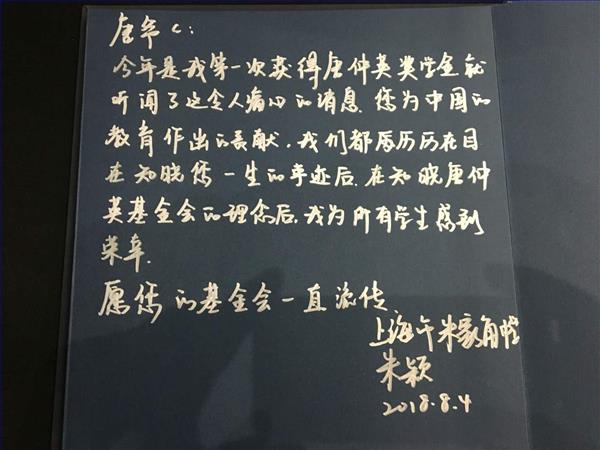 唐爷爷:
今年是我第一次获得唐仲英奖学金就
听闻了这令人痛心的消息.您为中国的
教育作出的贡献,我们都历历在目
在知晓您一生的事迹后.在知晓唐仲
英基金会的理念后,我为所有学生感到
荣幸.
愿您的基金会一直流传.
上海
朱颖
2018.8.4